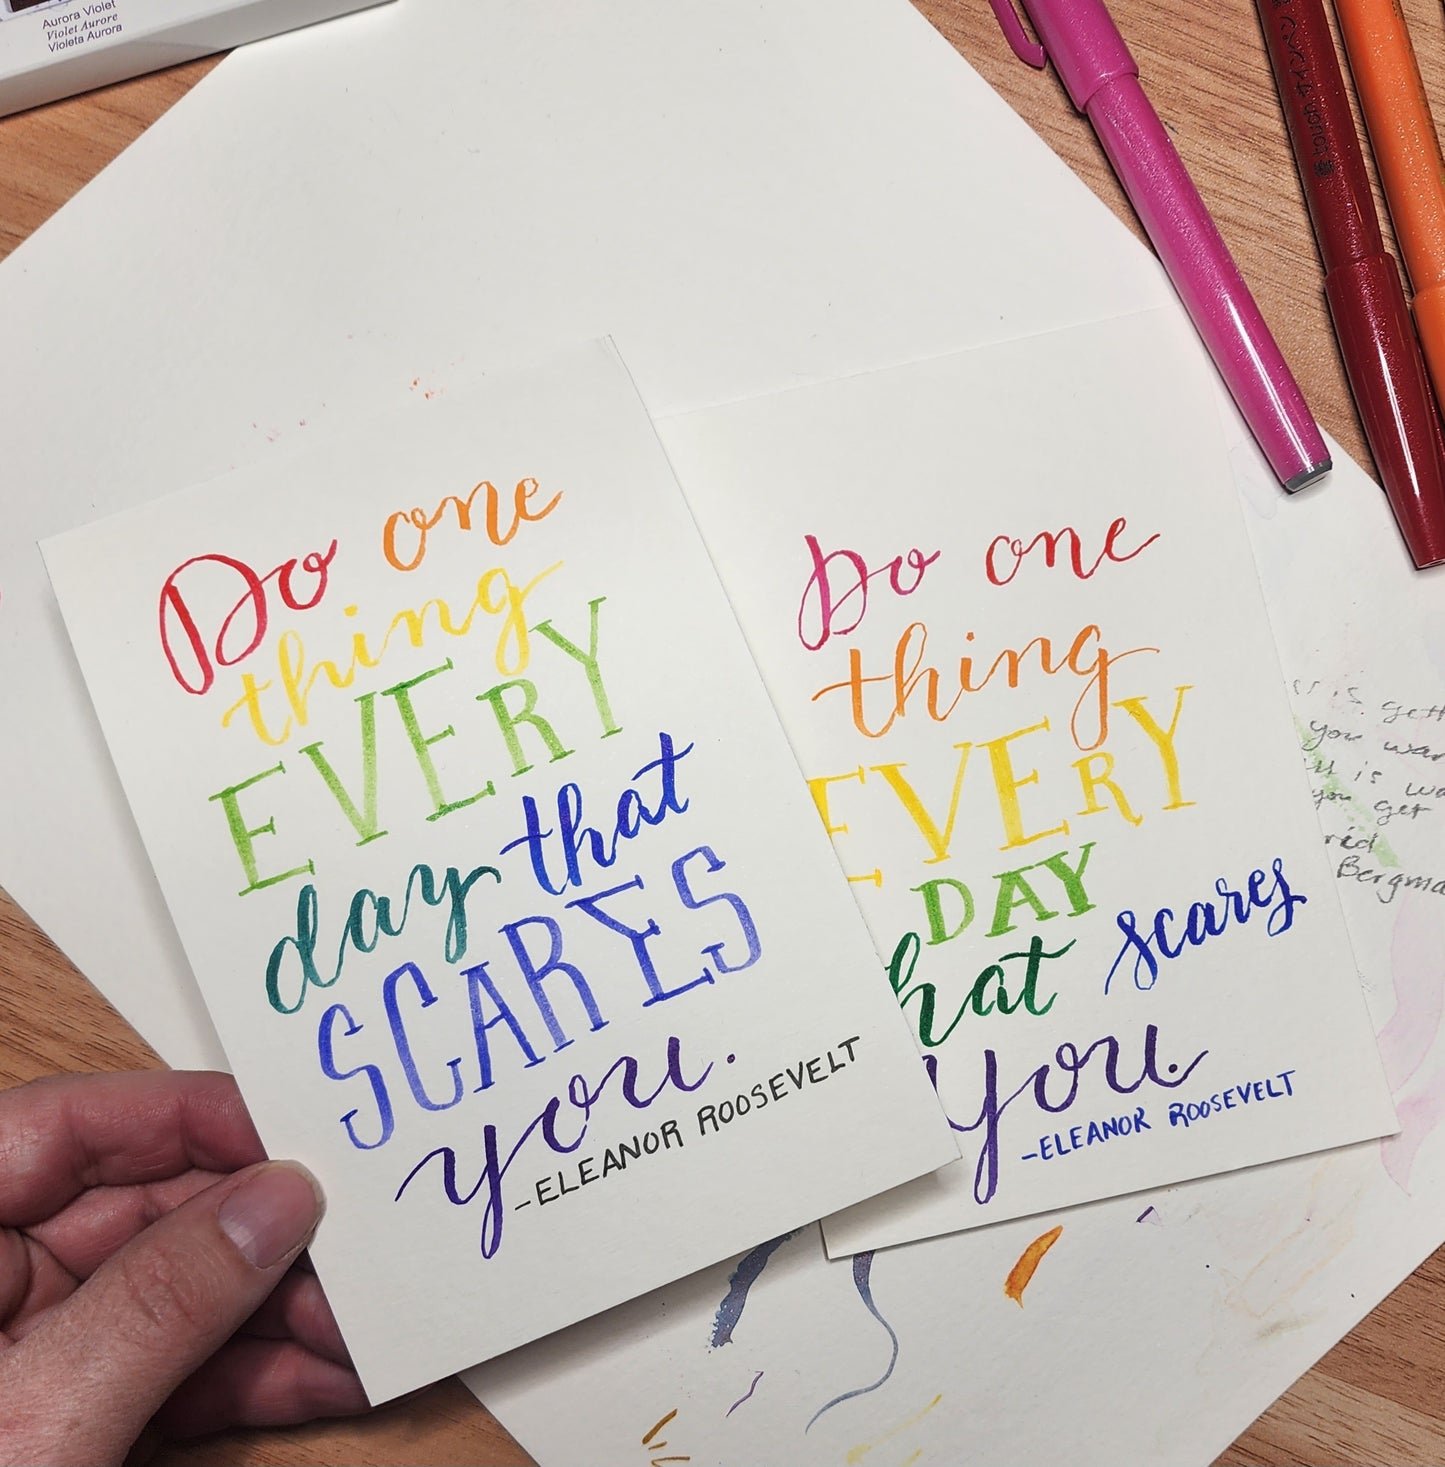 Aurora Violet
Violet Aurore
Violeta Aurora
Do one
thing
EVERY
day that
SCARES
you.
-ELEANOR ROOSEVELT
Do one
thing
EVERY
DAY
hat scares
you.
-ELEANOR ROOSEVELT
is gett
you wan
is wa
you get
rid
Bergma